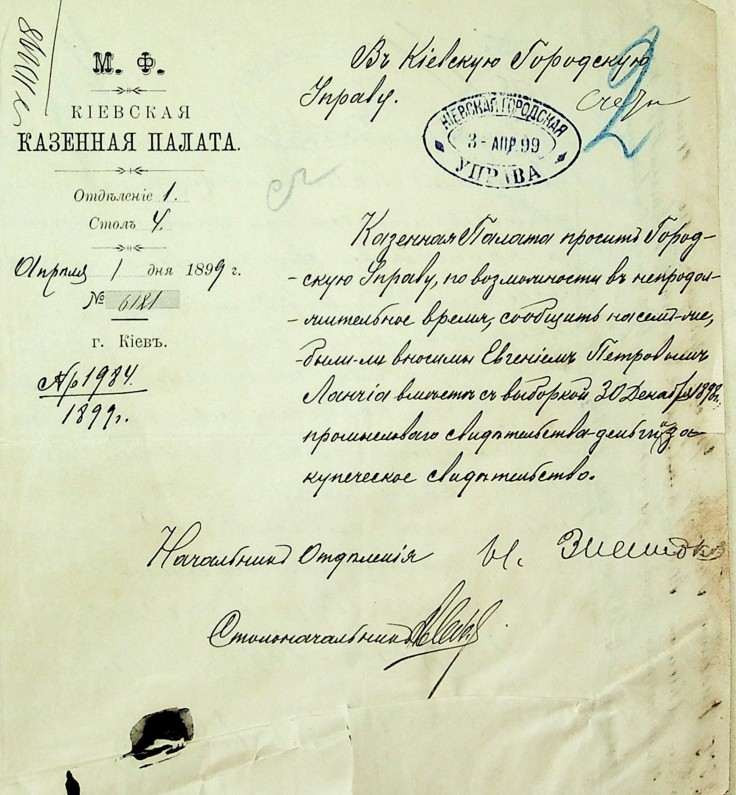 М. Ф.
КІЕВСКАЯ
КАЗЕННАЯ ПАЛАТА.
Отдѣленіе 1.
Столъ 4.
Апрѣля 1 дня 1899 г.
№ 6181
г. Кіевъ.
1984
1899 г.
Въ Кіевскую Городскую
Управу.
2
КІЕВСКАЯ ГОРОДСКАЯ
3 - АПР 99
УПРАВА
Казенная Палата проситъ Город-
-скую Управу, по возможности въ непродол-
-жительное время, сообщить на семъ-же,
-были-ли вносимы Евгеніемъ Петровичемъ
Ланчіа вмѣстѣ съ выборкой 30 Декабря 1898 г.
промысловаго свидѣтельства деньги за
купеческое свидѣтельство.
Начальникъ Отдѣленія И.
Столоначальникъ